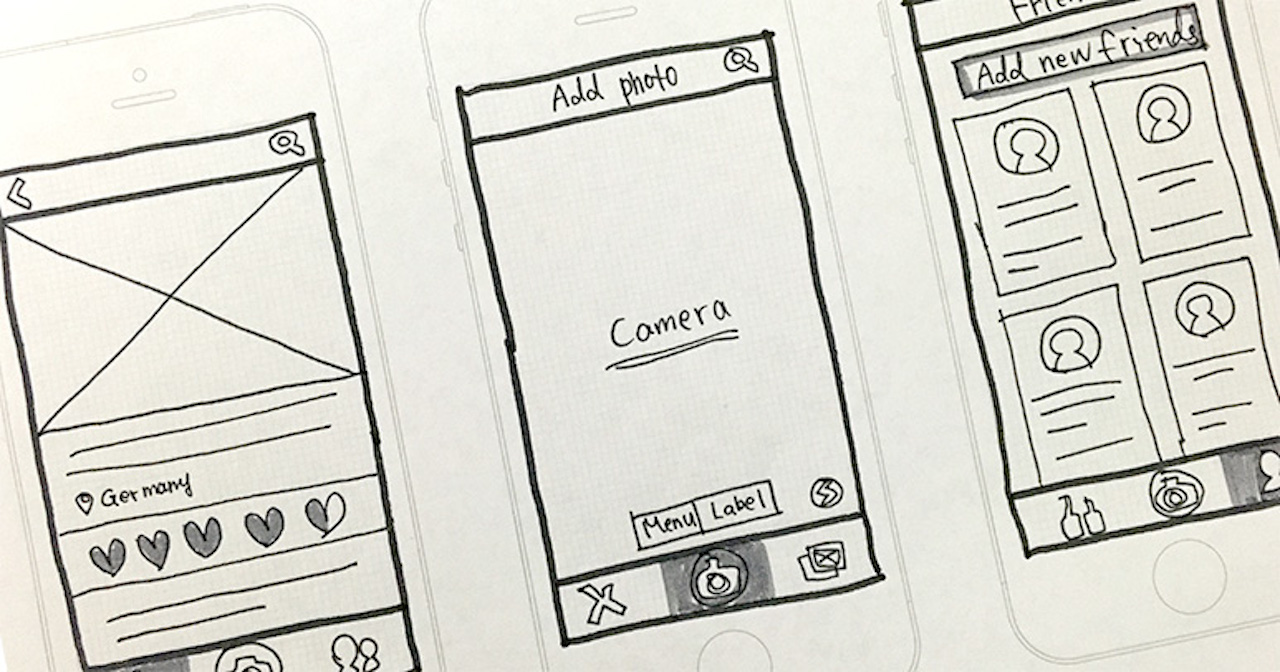 Germany
Add photo
Camera
Menu Label
Add new friends